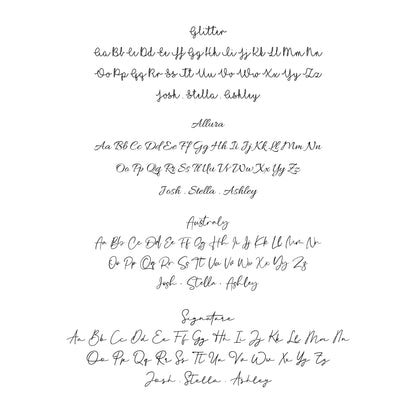 Glitter
Aa Bb Cc Dd Ee Ff Gg Hh Ii Jj Kk Ll Mm Nn
Oo Pp Qq Rr Ss Tt Uu Vv Ww Xx Yy Zz
Josh . Stella . Ashley
Allura
Aa Bb Cc Dd Ee Ff Gg Hh Ii Jj Kk Ll Mm Nn
Oo Pp Qq Rr Ss Tt Uu Vv Ww Xx Yy Zz
Josh . Stella . Ashley
Australy
Aa Bb Cc Dd Ee Ff Gg Hh Ii Jj Kk Ll Mm Nn
Oo Pp Qq Rr Ss Tt Uu Vv Ww Xx Yy Zz
Josh . Stella . Ashley
Signature
Aa Bb Cc Dd Ee Ff Gg Hh Ii Jj Kk Ll Mm Nn
Oo Pp Qq Rr Ss Tt Uu Vv Ww Xx Yy Zz
Josh . Stella . Ashley